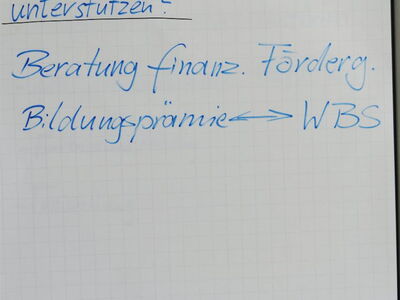 unterstützen?
Beratung finanz. Förderg.
Bildungsprämie ↔ WBS